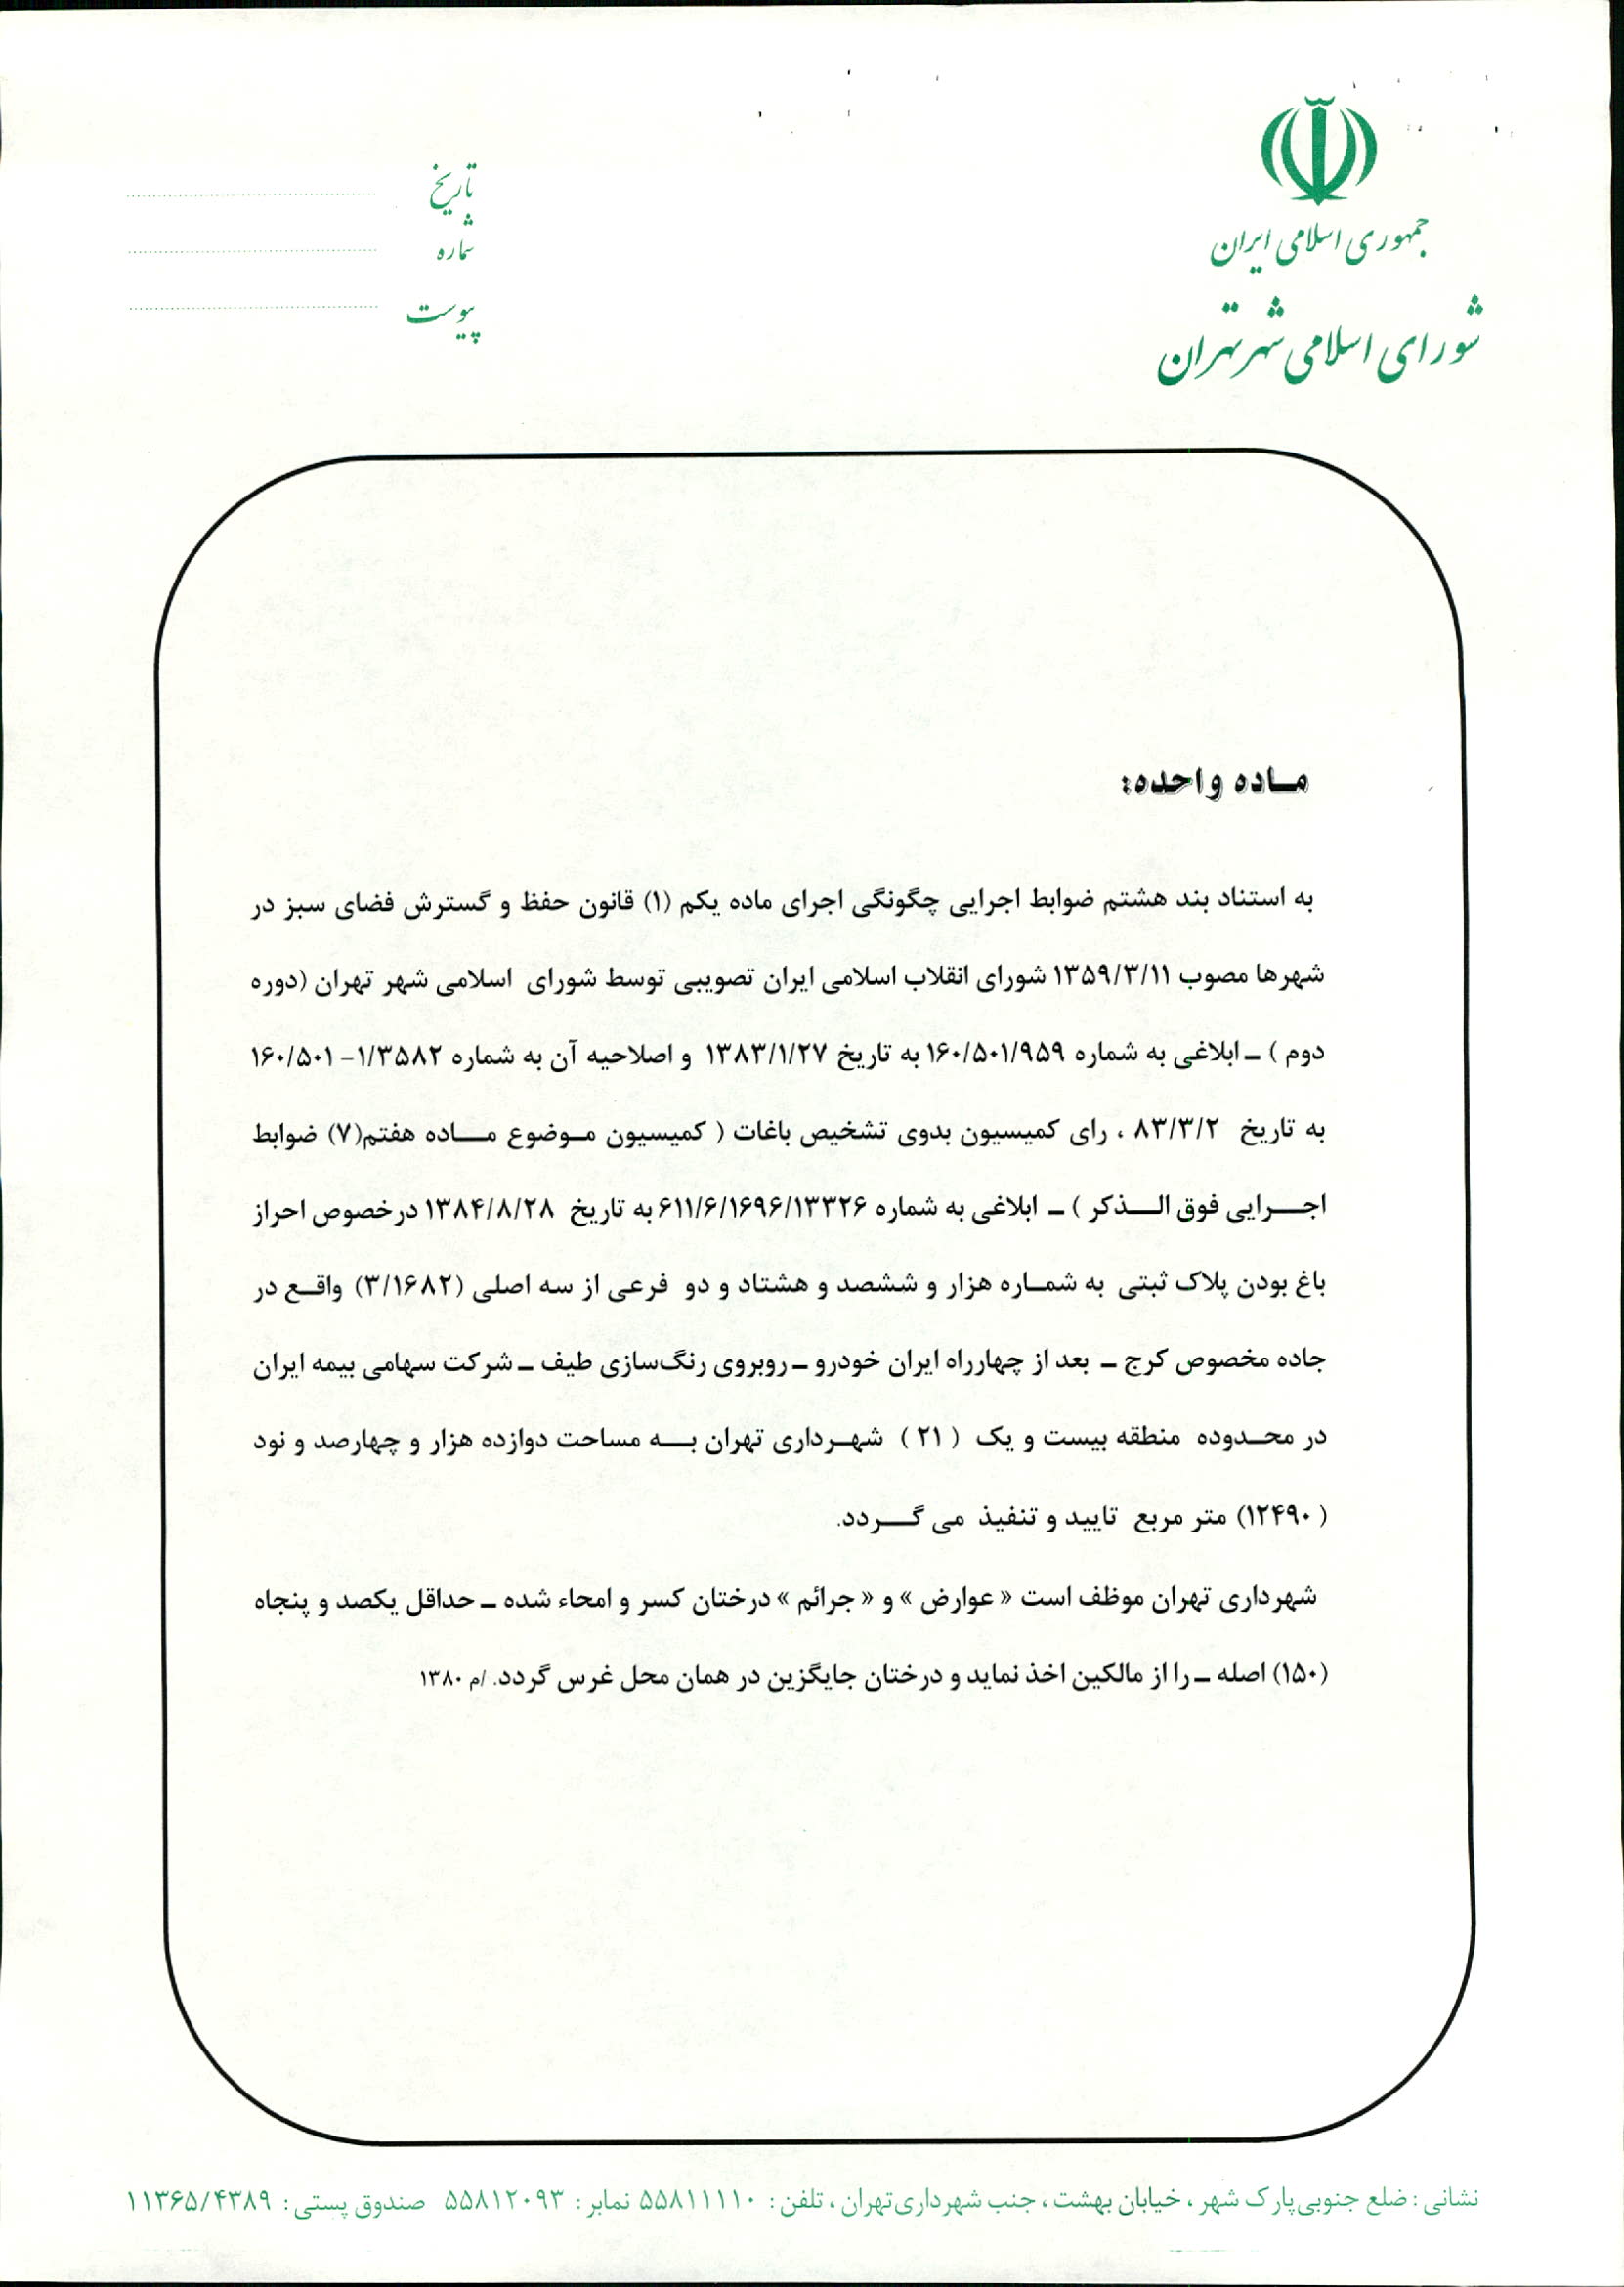 جمهوری اسلامی ایران
شورای اسلامی شهر تهران
تاریخ
شماره
پیوست
مـاده واحده:
به استناد بند هشتم ضوابط اجرایی چگونگی اجرای ماده یکم (۱) قانون حفظ و گسترش فضای سبز در
شهرها مصوب ۱۳۵۹/۳/۱۱ شورای انقلاب اسلامی ایران تصویبی توسط شورای اسلامی شهر تهران (دوره
دوم ) ـ ابلاغی به شماره ۱۶۰/۵۰۱/۹۵۹ به تاریخ ۱۳۸۳/۱/۲۷ و اصلاحیه آن به شماره ۱/۳۵۸۲- ۱۶۰/۵۰۱
به تاریخ ۸۳/۳/۲ ، رای کمیسیون بدوی تشخیص باغات ( کمیسیون مـوضوع مـــاده هفتم(۷) ضوابط
اجـــرایی فوق الـــذکر ) ـ ابلاغی به شماره ۶۱۱/۶/۱۶۹۶/۱۳۳۲۶ به تاریخ ۱۳۸۴/۸/۲۸ درخصوص احراز
باغ بودن پلاک ثبتی به شمـاره هزار و ششصد و هشتاد و دو فرعی از سه اصلی (۳/۱۶۸۲) واقـع در
جاده مخصوص کرج ـ بعد از چهارراه ایران خودرو ـ روبروی رنگ‌سازی طیف ـ شرکت سهامی بیمه ایران
در محـدوده منطقه بیست و یک ( ۲۱ ) شهـرداری تهران بـــه مساحت دوازده هزار و چهارصد و نود
( ۱۲۴۹۰) متر مربع تایید و تنفیذ می گـــردد.
شهرداری تهران موظف است « عوارض » و « جرائم » درختان کسر و امحاء شده ـ حداقل یکصد و پنجاه
(۱۵۰) اصله ـ را از مالکین اخذ نماید و درختان جایگزین در همان محل غرس گردد. /م ۱۳۸۰
نشانی : ضلع جنوبی پارک شهر ، خیابان بهشت ، جنب شهرداری تهران ، تلفن : ۵۵۸۱۱۱۱۰ نمابر : ۵۵۸۱۲۰۹۳ صندوق پستی : ۱۱۳۶۵/۴۳۸۹